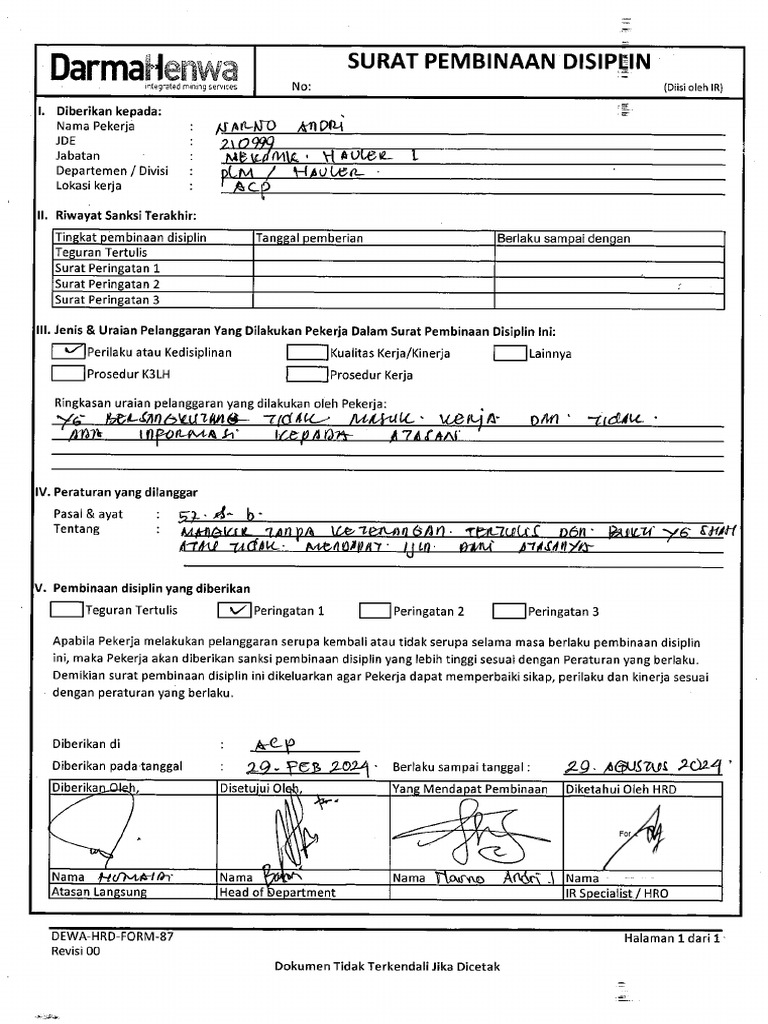 DarmaHenwa
integrated mining services
SURAT PEMBINAAN DISIPLIN
No:
(Diisi oleh IR)
I. Diberikan kepada:
Nama Pekerja : NARNO ANDRI
JDE : 210999
Jabatan : MEKANIK HAULER 1
Departemen / Divisi : PLM / HAULER
Lokasi kerja : ACP
II. Riwayat Sanksi Terakhir:
Tingkat pembinaan disiplin Tanggal pemberian Berlaku sampai dengan
Teguran Tertulis
Surat Peringatan 1
Surat Peringatan 2
Surat Peringatan 3
III. Jenis & Uraian Pelanggaran Yang Dilakukan Pekerja Dalam Surat Pembinaan Disiplin Ini:
✓ Perilaku atau Kedisiplinan Kualitas Kerja/Kinerja Lainnya
Prosedur K3LH Prosedur Kerja
Ringkasan uraian pelanggaran yang dilakukan oleh Pekerja:
YG BERSANGKUTANG TIDAK MASUK KERJA DAN TIDAK
ADA INFORMASI KEPADA ATASAN
IV. Peraturan yang dilanggar
Pasal & ayat : 57. b.
Tentang : MANGKIR TANPA KETERANGAN TERTULIS DGN BUKTI YG SHAH
ATAU TIDAK MENDAPAT IJIN DARI ATASANYA
V. Pembinaan disiplin yang diberikan
Teguran Tertulis ✓ Peringatan 1 Peringatan 2 Peringatan 3
Apabila Pekerja melakukan pelanggaran serupa kembali atau tidak serupa selama masa berlaku pembinaan disiplin
ini, maka Pekerja akan diberikan sanksi pembinaan disiplin yang lebih tinggi sesuai dengan Peraturan yang berlaku.
Demikian surat pembinaan disiplin ini dikeluarkan agar Pekerja dapat memperbaiki sikap, perilaku dan kinerja sesuai
dengan peraturan yang berlaku.
Diberikan di : ACP
Diberikan pada tanggal : 29-FEB 2024 Berlaku sampai tanggal : 29-AGUSTUS 2024
Diberikan Oleh, Disetujui Oleh, Yang Mendapat Pembinaan Diketahui Oleh HRD
For
Nama HUMAIDI Nama Nama Narno Andri Nama
Atasan Langsung Head of Department IR Specialist / HRO
DEWA-HRD-FORM-87 Halaman 1 dari 1
Revisi 00
Dokumen Tidak Terkendali Jika Dicetak